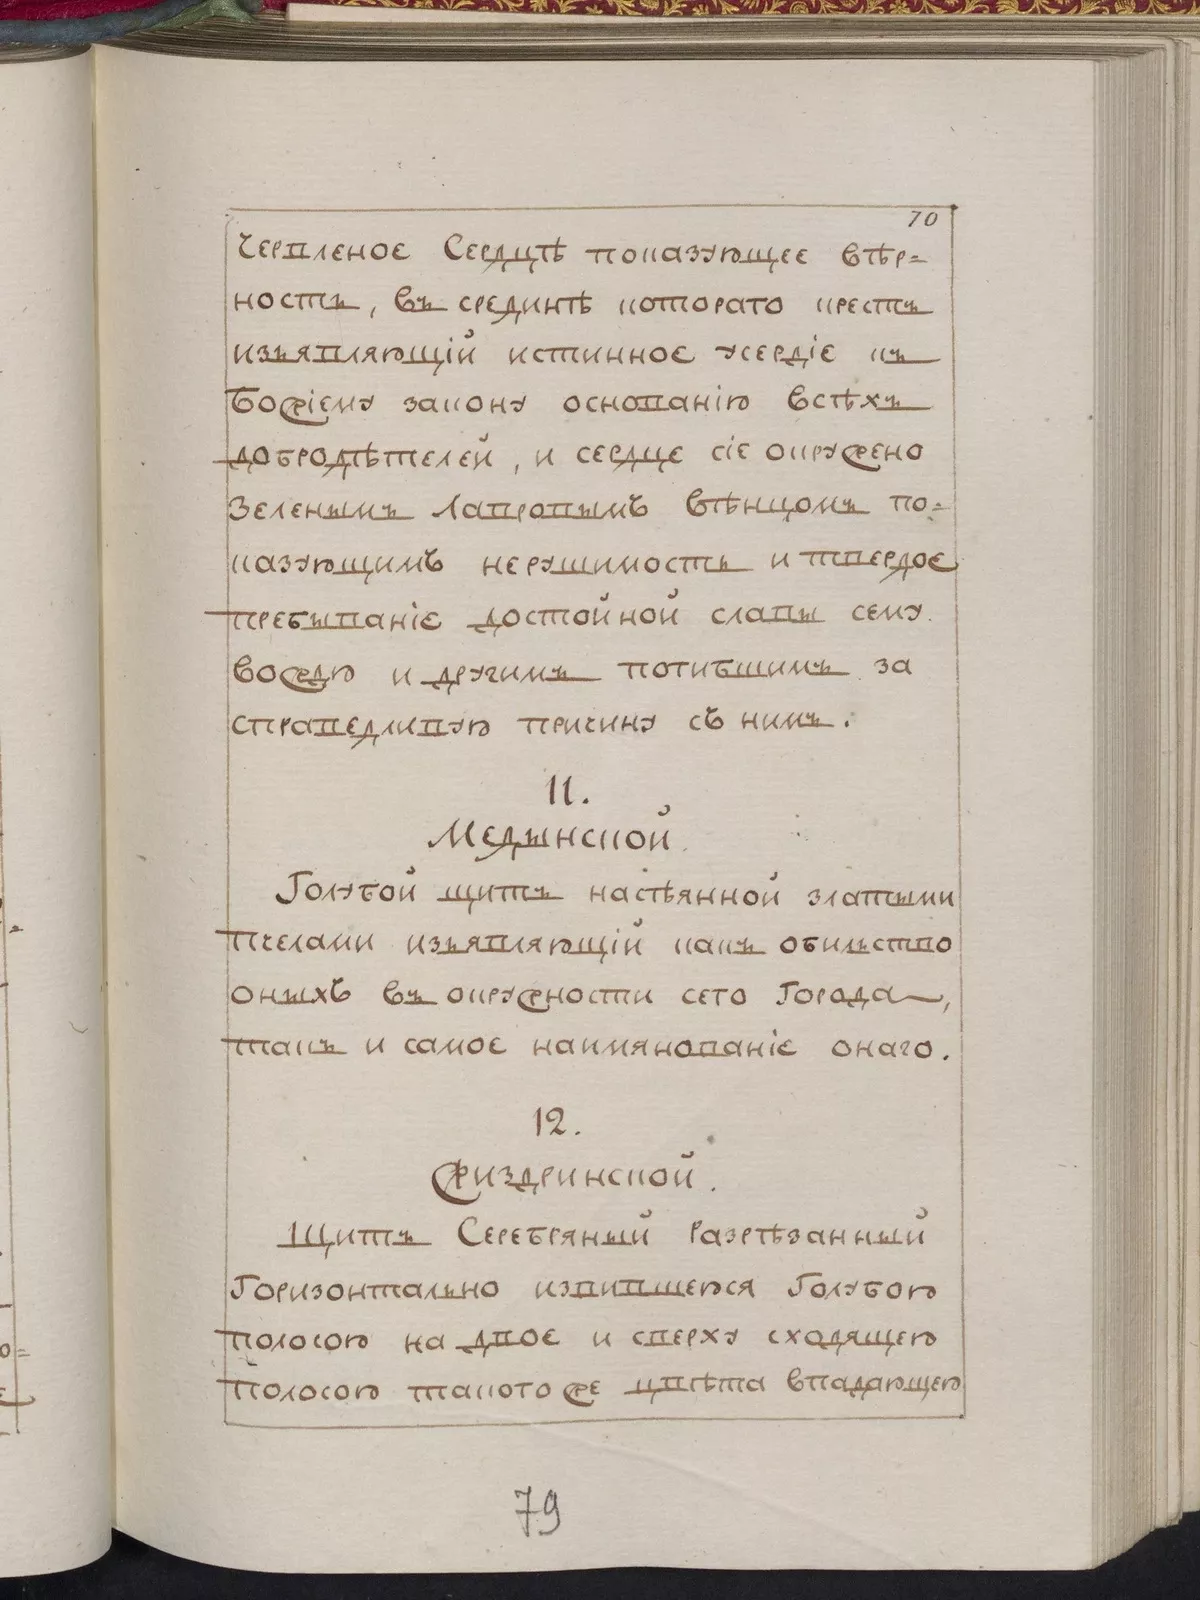 70
Червленое Сердцѣ показующее вѣр=
ность, въ срединѣ котораго крестъ
изъявляющій истинное усердіе къ
Божіему закону основанію всѣхъ
добродѣтелей, и сердце сіе окружено
Зеленымъ Лавровымъ вѣнцомъ по=
казующимъ нерушимость и твердое
пребываніе достойной славы сему
вождю и другимъ погибшимъ за
справедливую причину съ нимъ.
11.
Медынской.
Голубой щитъ насѣянной златыми
пчелами изъявляющій какъ обильство
оныхъ въ окружности сего Города,
такъ и самое наимянованіе онаго.
12.
Жиздринской.
Щитъ Серебряный разрѣзанный
Горизонтально извившеюся Голубою
полосою на двое и сверху сходящею
полосою такого же цвѣта впадающею
79